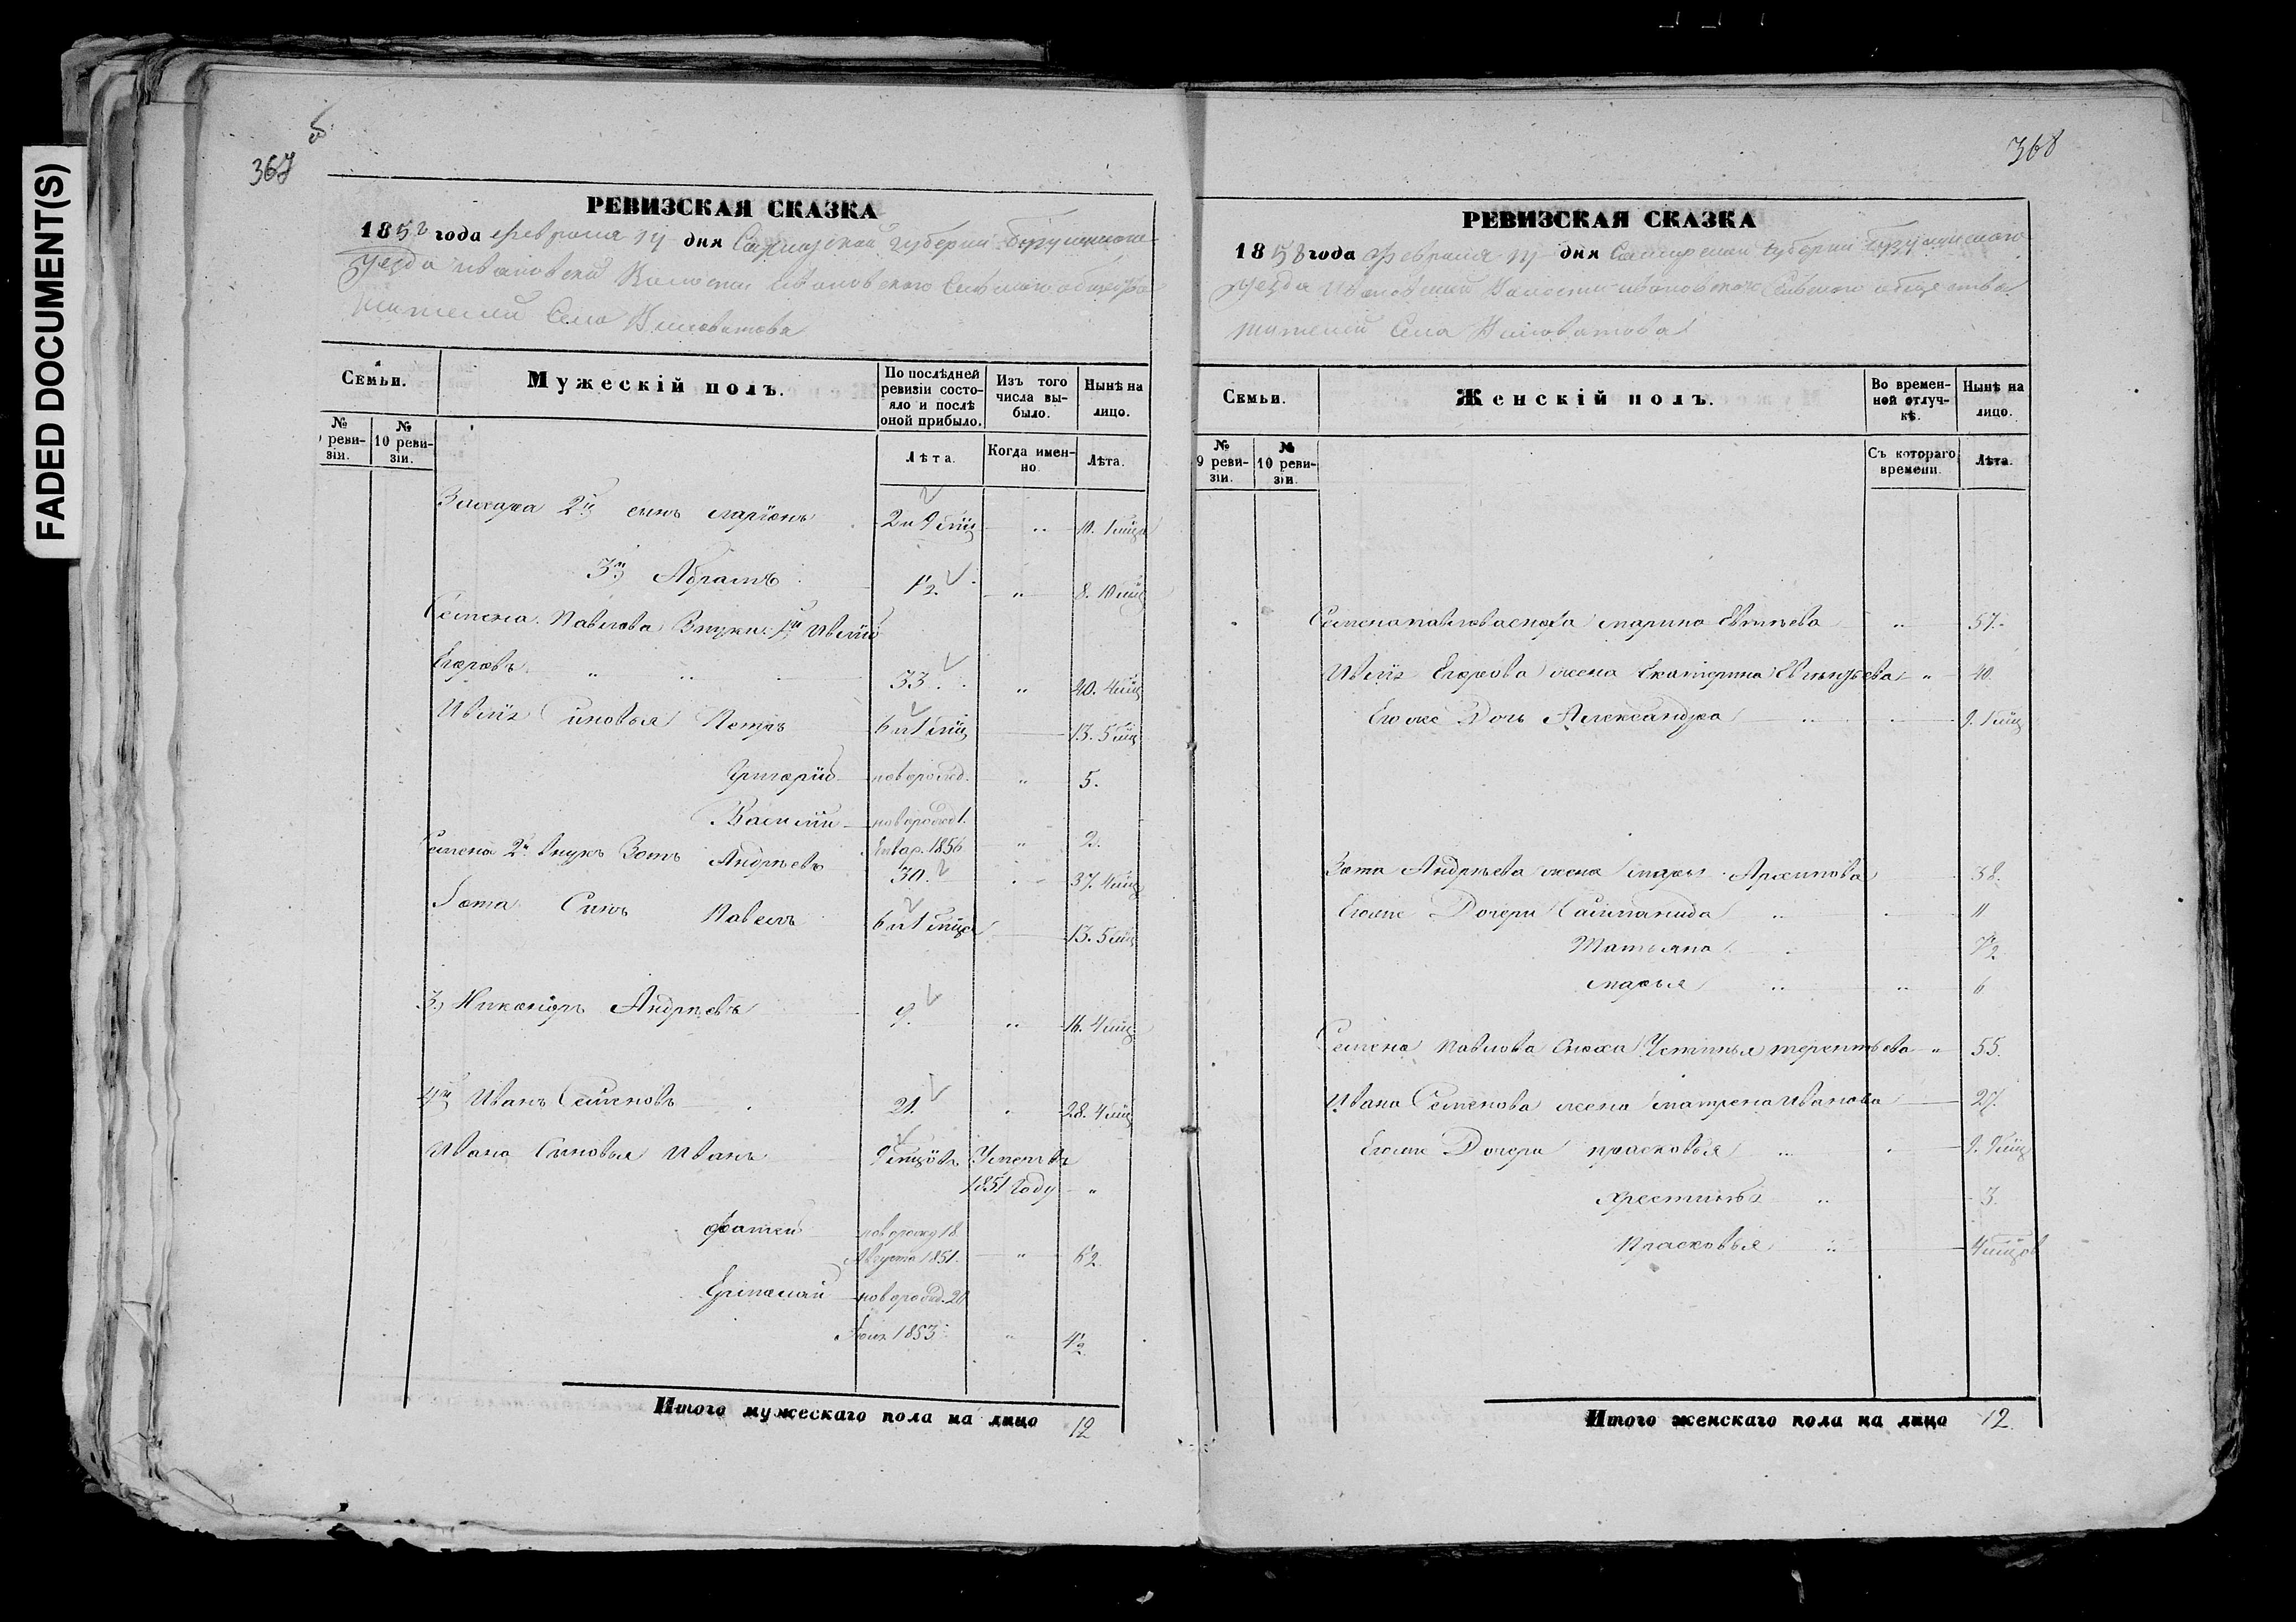 FADED DOCUMENT(S)
367
РЕВИЗСКАЯ СКАЗКА
1858 года февраля 14 дня Самарской губернии
уезда Ивановской Волости Ивановского Сельского общества
жителей Села
Семьи.
Мужескій полъ.
По послѣдней ревизіи состояло и послѣ оной прибыло.
Изъ того числа выбыло.
Нынѣ на лицо.
№ ревизіи.
№ 10 ревизіи.
Лѣта.
Когда именно.
Лѣта.
2й сынъ Ларіонъ 2 и 9 мѣц " 10. 1 мѣца
3й Абрамъ 1½ " 8. 10 мѣц
Семена Павлова Внуки 1й Ивлій
Егоровъ " " 33 " 40. 4 мѣц
Ивлія Сыновья Петръ 6 и 1 мѣц 13. 5 мѣц
Григорій новорожд. " 5.
Василій новорожд 1
Январ. 1856 " 2.
Семена 2й внукъ Зотъ Андрѣевъ 30. 37. 4 мѣц
Зота Сынъ Павелъ 6 и 1 мѣца 13. 5 мѣц
3, Андрѣевъ 9. " 16. 4 мѣц
4й Иванъ Семеновъ 21. 28. 4 мѣц
Ивана Сыновья Иванъ 9 мѣцовъ Умеръ въ
1851 году "
Фатей новорожд 18
Августа 1851. " 6½
новорожд. 20
1853 " 4½
Итого мужескаго пола на лицо 12
368
РЕВИЗСКАЯ СКАЗКА
1858 года февраля 14 дня Самарской губернии
уезда Ивановской Волости Ивановского Сельского общества
жителей Села
Семьи.
Женскій полъ.
Во временной отлучкѣ.
Нынѣ на лицо.
№ 9 ревизіи.
№ 10 ревизіи.
Съ котораго времени.
Лѣта.
Семена Павлова сноха Марина " 57.
Ивлія Егорова жена Екатерина " 40.
Его же Дочь Александра " 9. 1 мѣц
Зота Андрѣева жена Марья Архипова 38.
Его же Дочери 11
Татьяна 7½
Марья " " 6
Семена Павлова Сноха Устинья Терентьева " 55.
Ивана Семенова жена Матрена Иванова 27.
Его же Дочери Прасковья " 9. 9 мѣц
" 3.
Прасковья " 4 мѣцов
Итого женскаго пола на лицо 12.